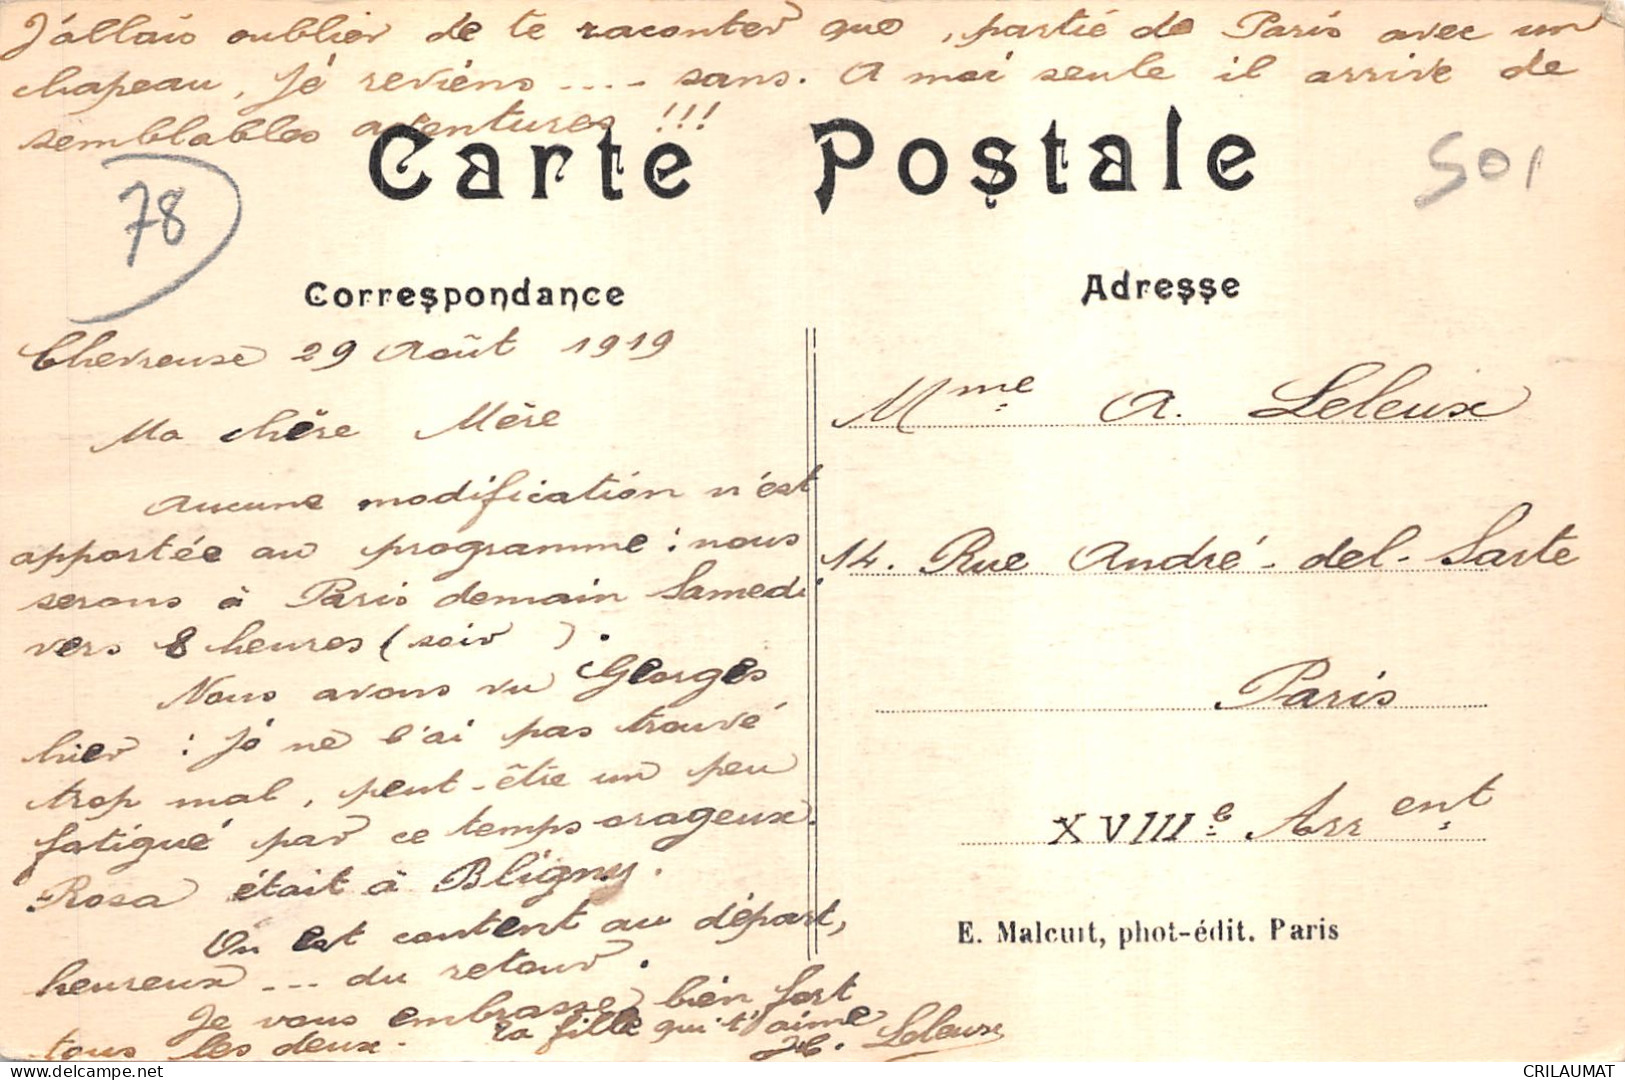 J'allais oublier de te raconter que, partie de Paris avec un
chapeau, Je reviens .... sans. A moi seule il arrive de
semblables aventures !!!
Carte Postale
78
501
Correspondance
Adresse
Chevreuse 29 Août 1919
Ma chère Mère
Aucune modification n'est
apportée au programme : nous
serons à Paris demain Samedi
vers 8 heures (soir).
Nous avons vu Georges
hier : Je ne l'ai pas trouvé
trop mal, peut-être un peu
fatigué par ce temps orageux.
Rosa était à Bligny.
On est content au départ,
heureux ... du retour.
Je vous embrasse bien fort
tous les deux. Ta fille qui t'aime
H. Leleux
Mme A. Leleux
14. Rue André-del-Sarte
Paris
XVIIIe Arrent
E. Malcuit, phot-édit. Paris
CRILAUMAT